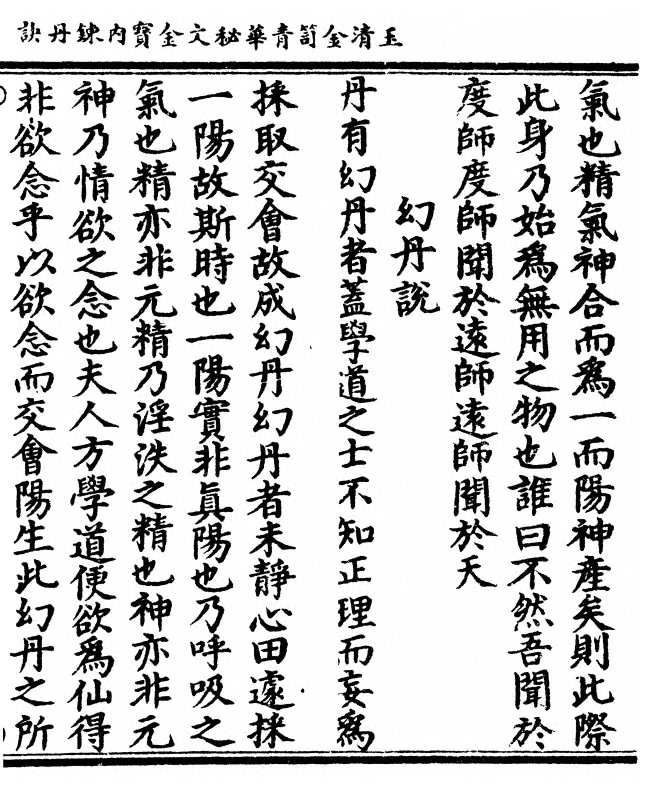 玉清金笥青華秘文金寶內鍊丹訣
氣也精氣神合而爲一而陽神產矣則此際
此身乃始爲無用之物也誰曰不然吾聞於
度師度師聞於遠師遠師聞於天
幻丹說
丹有幻丹者蓋學道之士不知正理而妄爲
採取交會故成幻丹幻丹者未靜心田遽採
一陽故斯時也一陽實非眞陽也乃呼吸之
氣也精亦非元精乃淫泆之精也神亦非元
神乃情欲之念也夫人方學道便欲爲仙得
非欲念乎以欲念而交會陽生此幻丹之所